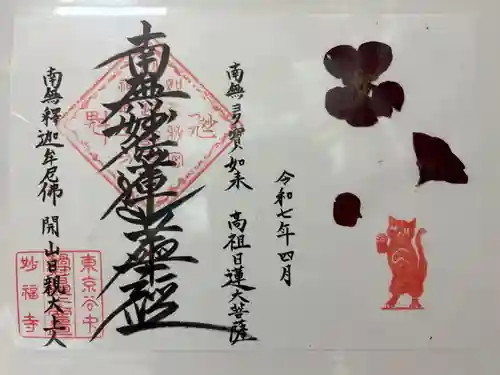 令和七年四月
南無多寳如来 高祖日蓮大菩薩
南無妙法蓮華經
南無釋迦牟尼佛 開山日親大上人
東京谷中
妙福寺